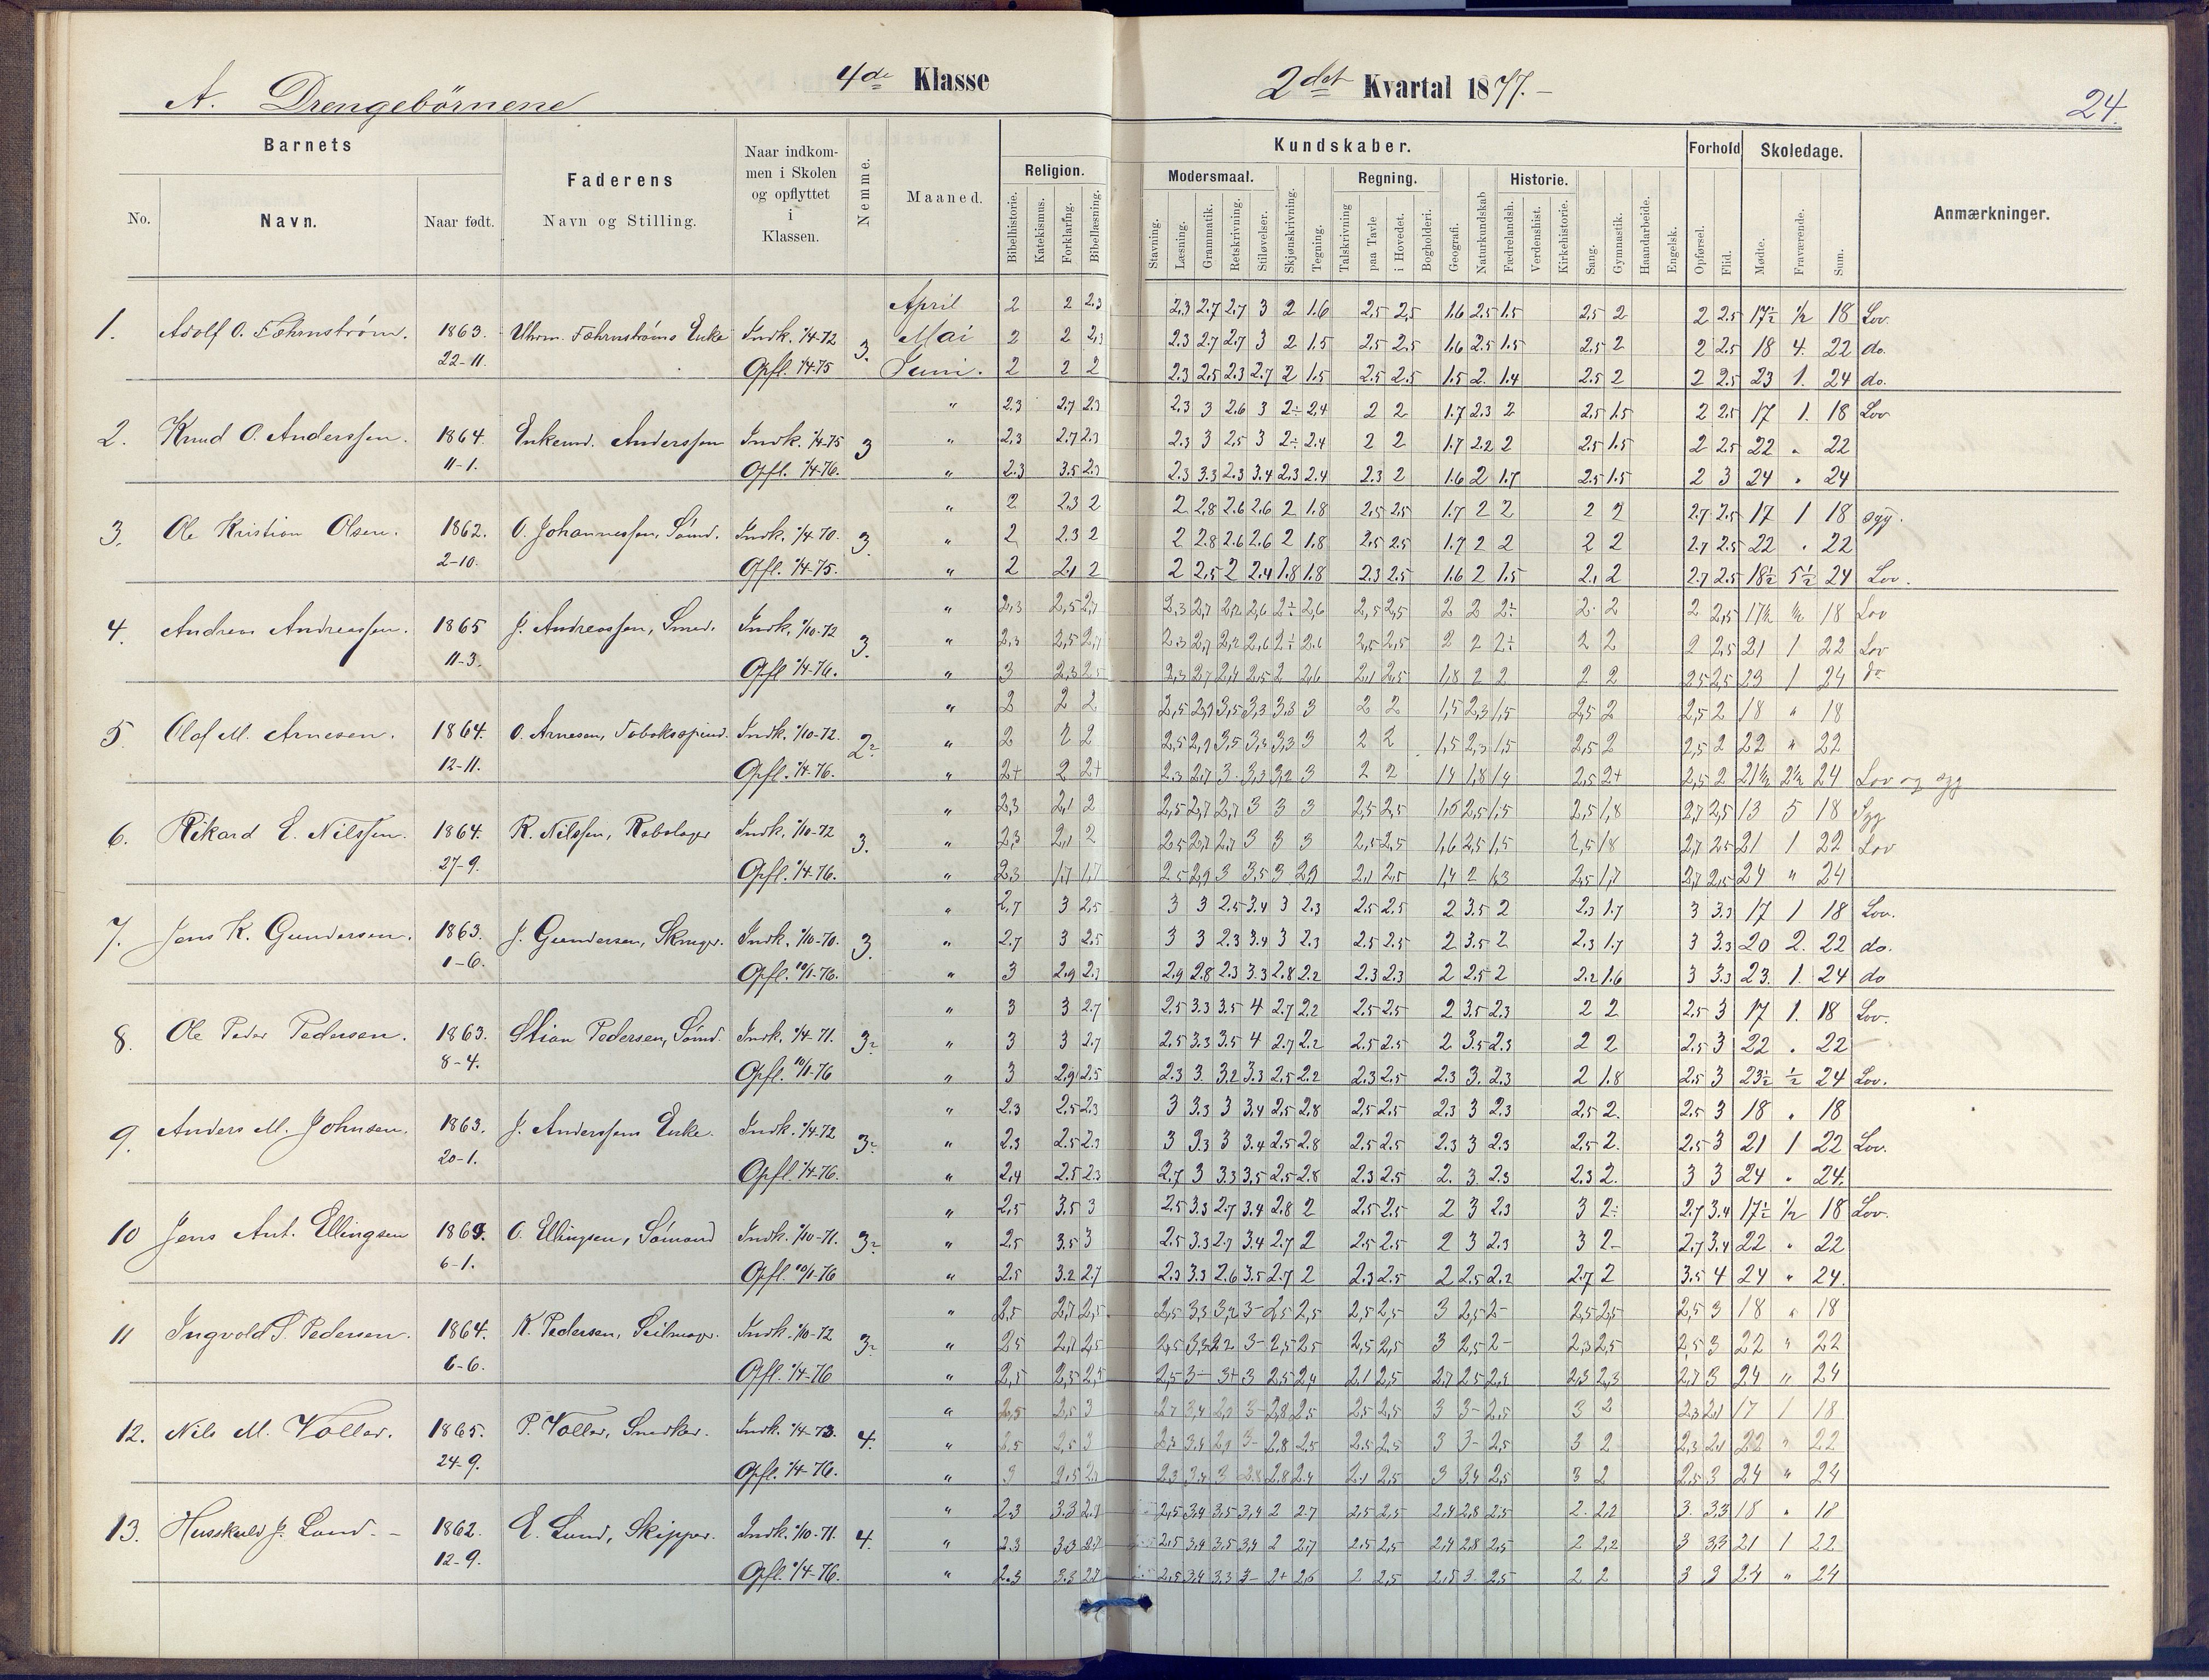 4de Klasse
2det Kvartal 1877.-
24.
A. Drengebörnene
Barnets
Faderens
Navn og Stilling.
Naar indkom-
men i Skolen
og opflyttet
i
Klassen.
Nemme.
Maaned.
Kundskaber.
Forhold
Skoledage.
Anmærkninger.
No.
Navn.
Naar født.
Religion.
Modersmaal.
Regning.
Historie.
Bibelhistorie.
Katekismus.
Forklaring.
Bibellæsning.
Stavning.
Læsning.
Grammatik.
Retskrivning.
Stiløvelser.
Skjønskrivning.
Tegning.
Talskrivning
paa Tavle
i Hovedet.
Bogholderi.
Geografi.
Naturkundskab
Fædrelandsh.
Verdenshist.
Kirkehistorie.
Sang.
Gymnastik.
Haandarbeide.
Engelsk.
Opførsel.
Flid.
Mødte.
Fraværende.
Sum.
April 2 2 2.3 2.3 2.7 2.7 3 2 1.6 2.5 2.5 1.6 2.5 1.5 2.5 2 2 2.5 17½ ½ 18 Lov.
1. Adolf O. 1863. Enke Indk. 1/4-72 3. Mai 2 2 2.3 2.3 2.7 2.7 3 2 1.5 2.5 2.5 1.6 2.5 1.5 2.5 2 2 2.5 18 4. 22 do.
22-11. Opfl. 1/4-75 Juni. 2 2 2 2.3 2.5 2.3 2.7 2 1.5 2.5 2.5 1.5 2. 1.4 2.5 2 2 2.5 23 1. 24 do.
" 2.3 2.7 2.3 2.3 3 2.6 3 2÷ 2.4 2 2 1.7 2.3 2 2.5 1.5 2 2.5 17 1. 18 Lov
2. Knud O. Anderssen. 1864. Enkem. Anderssen Indk. 1/4-75 3 " 2.3 2.7 2.3 2.3 3 2.5 3 2÷ 2.4 2 2 1.7 2.2 2 2.5 1.5 2 2.5 22 " 22
11-1. Opfl. 1/4-76. " 2.3 3.5 2.3 2.3 3.3 2.3 3.4 2.3 2.4 2.3 2 1.6 2 1.7 2.5 1.5 2 3 24 " 24
" 2 2.3 2 2 2.8 2.6 2.6 2 1.8 2.5 2.5 1.7 2 2 2 2 2.7 2.5 17 1 18 syg.
3. Ole Kristian Olsen. 1862. O. Johannessen, Sømd. Indk. 1/4-70. 3. " 2 2.3 2 2 2.8 2.6 2.6 2 1.8 2.5 2.5 1.7 2 2 2 2 2.7 2.5 22 . 22
2-10. Opfl. 1/4-75. " 2 2.1 2 2 2.5 2 2.4 1.8 1.8 2.3 2.5 1.6 2 1.5 2.1 2 2.7 2.5 18½ 5½ 24 Lov.
" 2,3 2,5 2,7 2,3 2,7 2,2 2,6 2÷ 2,6 2,5 2,5 2 2 2÷ 2 2 2 2,5 17½ ½ 18 Lov
4. Andreas Andreassen. 1865 J. Andreassen, Smed. Indk. 1/10-72 3. " 2,3 2,5 2,7 2,3 2,7 2,2 2,6 2÷ 2.6 2,5 2,5 2 2 2÷ 2 2 2 2,5 21 1 22 Lov
11-3. Opfl 1/4-76. " 3 2,3 2,5 2,3 2,7 2,4 2,5 2 2,6 2,1 2,5 1,8 2 2 2 2 2,5 2,5 23 1 24 do
" 2 2 2 2,5 2,9 3,5 3,3 3,3 3 2 2 1,5 2,3 1,5 2,5 2 2,5 2 18 " 18
5. Olaf M. Arnesen. 1864. O. Arnesen, Tobakspind. Indk. 1/10-72. 2÷ " 2 2 2 2,5 2,9 3,5 3,3 3,3 3 2 2 1,5 2,3 1,5 2,5 2 2,5 2 22 " 22
12-11. Opfl. 1/4-76. " 2+ 2 2+ 2,3 2,7 3. 3,3 3,2 3 2 2 1,4 1,8 1,4 2,5 2+ 2,5 2 21½ 2½ 24 Lov og syg
" 2,3 2,1 2 2,5 2,7 2,7 3 3 3 2,5 2,5 1,6 2,5 1,5 2,5 1,8 2,7 2,5 13 5 18 Syg
6. Rikard E. Nilssen. 1864. R. Nilssen, Indk. 1/10-72 3. " 2,3 2,1 2 2,5 2,7 2,7 3 3 3 2,5 2,5 1,6 2,5 1,5 2,5 1,8 2,7 2,5 21 1 22 Lov
27-9. Opfl. 1/4-76. " 2,3 1,7 1,7 2,5 2,9 3 3,5 3 2,9 2,1 2,5 1,4 2 1,3 2,5 1,7 2,7 2,5 24 " 24
" 2.7 3 2.5 3 3 2.5 3.4 3 2.3 2.5 2.5 2 3.5 2 2.3 1.7 3 3.3 17 1 18 Lov.
7. Jens K. Gundersen. 1863. J. Gundersen, Indk. 1/10-70. 3. " 2.7 3 2.5 3 3 2.3 3.4 3 2.3 2.5 2.5 2 3.5 2 2.3 1.7 3 3.3 20 2. 22 do.
1-6. Opfl. 10/1-76. " 3 2.9 2.7 2.9 2.8 2.3 3.3 2.8 2.2 2.3 2.3 2 2.5 2 2.2 1.6 3 3.3 23. 1. 24 do
" 3 3 2.7 2.5 3.3 3.5 4 2.7 2.2 2.5 2.5 2 3.5 2.3 2 2 2.5 3 17 1. 18 Lov.
8. Ole Peder Pedersen. 1863. Stian Pedersen, Sømd. Indk. 1/4-71. 3÷ " 3 3 2.7 2.5 3.3 3.5 4 2.7 2.2 2.5 2.5 2 3.5 2.3 2 2 2.5 3 22 . 22
8-4. Opfl. 10/1-76 " 3 2.9 2.5 2.3 3. 3.2 3.3 2.5 2.2 2.3 2.5 2.3 3. 2.3 2 1.8 2.5 3 23½ ½ 24 Lov.
" 2.3 2.5 2.3 3 3.3 3 3.4 2.5 2.8 2.5 2.5 2.3 3 2.3 2.5 2. 2.5 3 18 . 18
9. Anders M. Johnsen. 1863. J. Anderssens Enke. Indk. 1/4-72 3÷ " 2.3 2.5 2.3 3 3.3 3 3.4 2.5 2.8 2.5 2.5 2.3 3 2.3 2.5 2. 2.5 3 21 1 22 Lov.
20-1. Opfl. 1/4-76. " 2.4 2.5 2.3 2.7 3 3.3 3.5 2.5 2.8 2.3 2.5 2. 3. 2.3 2.3 2. 3 3 24 . 24.
" 2.5 3.5 3 2.5 3.3 2.7 3.4 2.8 2 2.5 2.5 2 3 2.3 3 2÷ 2.7 3.4 17½ ½ 18 Lov.
10 Jens Ant. Ellingsen O. Ellingsen, Sömand Indk. 1/10-71. 3÷ " 2.5 3.5 3 2.5 3.3 2.7 3.4 2.7 2 2.5 2.5 2 3 2.3 3 2- 2.7 3.4 22 . 22
6-1. Opfl. 10/1-76 " 2.5 3.2 2.7 2.3 3.3 2.6 3.5 2.7 2 2.3 2.5 2 2.5 2.2 2.7 2 3.5 4 24 " 24.
" 2,5 2,7 2,5 2,5 3,3 3,2 3- 2,5 2,5 2,5 2,5 3 2,5 2- 2,5 2,5 2,5 3 18 " 18
11 Ingvald S. Pedersen. 1864. K. Pedersen, Seilmager. Indk. 1/10-72 3÷ " 2,5 2,7 2,5 2,5 3- 2,5 2,5 2,5 2,5 3 2,5 2- 2,3 2,5 2,5 3 22 " 22
6-6. Opfl. 1/4-76 " 2,5 2,5 2,5 2,5 3- 3+ 3 2,5 2,4 2.1 2,5 2,7 2,5 2,4 2,3 2,3 2,7 3 24 " 24
" 2,5 2,5 3 2,7 3,4 2,9 3- 2,8 2,5 2,5 2,5 3 3- 2,5 3 2 2,3 2,1 17 1 18
12. Nils M. Voller. 1865. P. Voller, Snedker. Indk. 1/4-73. 4. " 2,5 2,5 3 2,3 3,4 2,9 3- 2,8 2,5 2,5 2,5 3 3- 2,5 3 2 2,3 2,1 22 " 22
24-9. Opfl. 1/4-76. " 3 2,5 2,3 3,4 3 2,8 2,4 2,1 2,5 3 3,4 2,5 3 2 2,5 3 24 " 24
" 2.3 3.3 2.7 2,5 3,4 3,5 3,4 2 2.7 2,5 2,5 2,4 2,8 2,5 2. 2,2 3. 3,3 18 " 18
13. J. Lund. - 1862. E. Lund, Skipper. Indk. 1/10-71. 4. " 2.3 3.3 2.7 2,5 3,4 3,5 3,4 2 2,7 2.5 2,5 2,4 2,8 2,5 2 2,2 3 3,3 21 1 22
12-9. Opfl. 1/4-76. " 2.3 3.3 2.7 2,5 3,4 3,3 3- 2+ 2,6 2 2,5 3 2,5 2 2 3 3 24 " 24